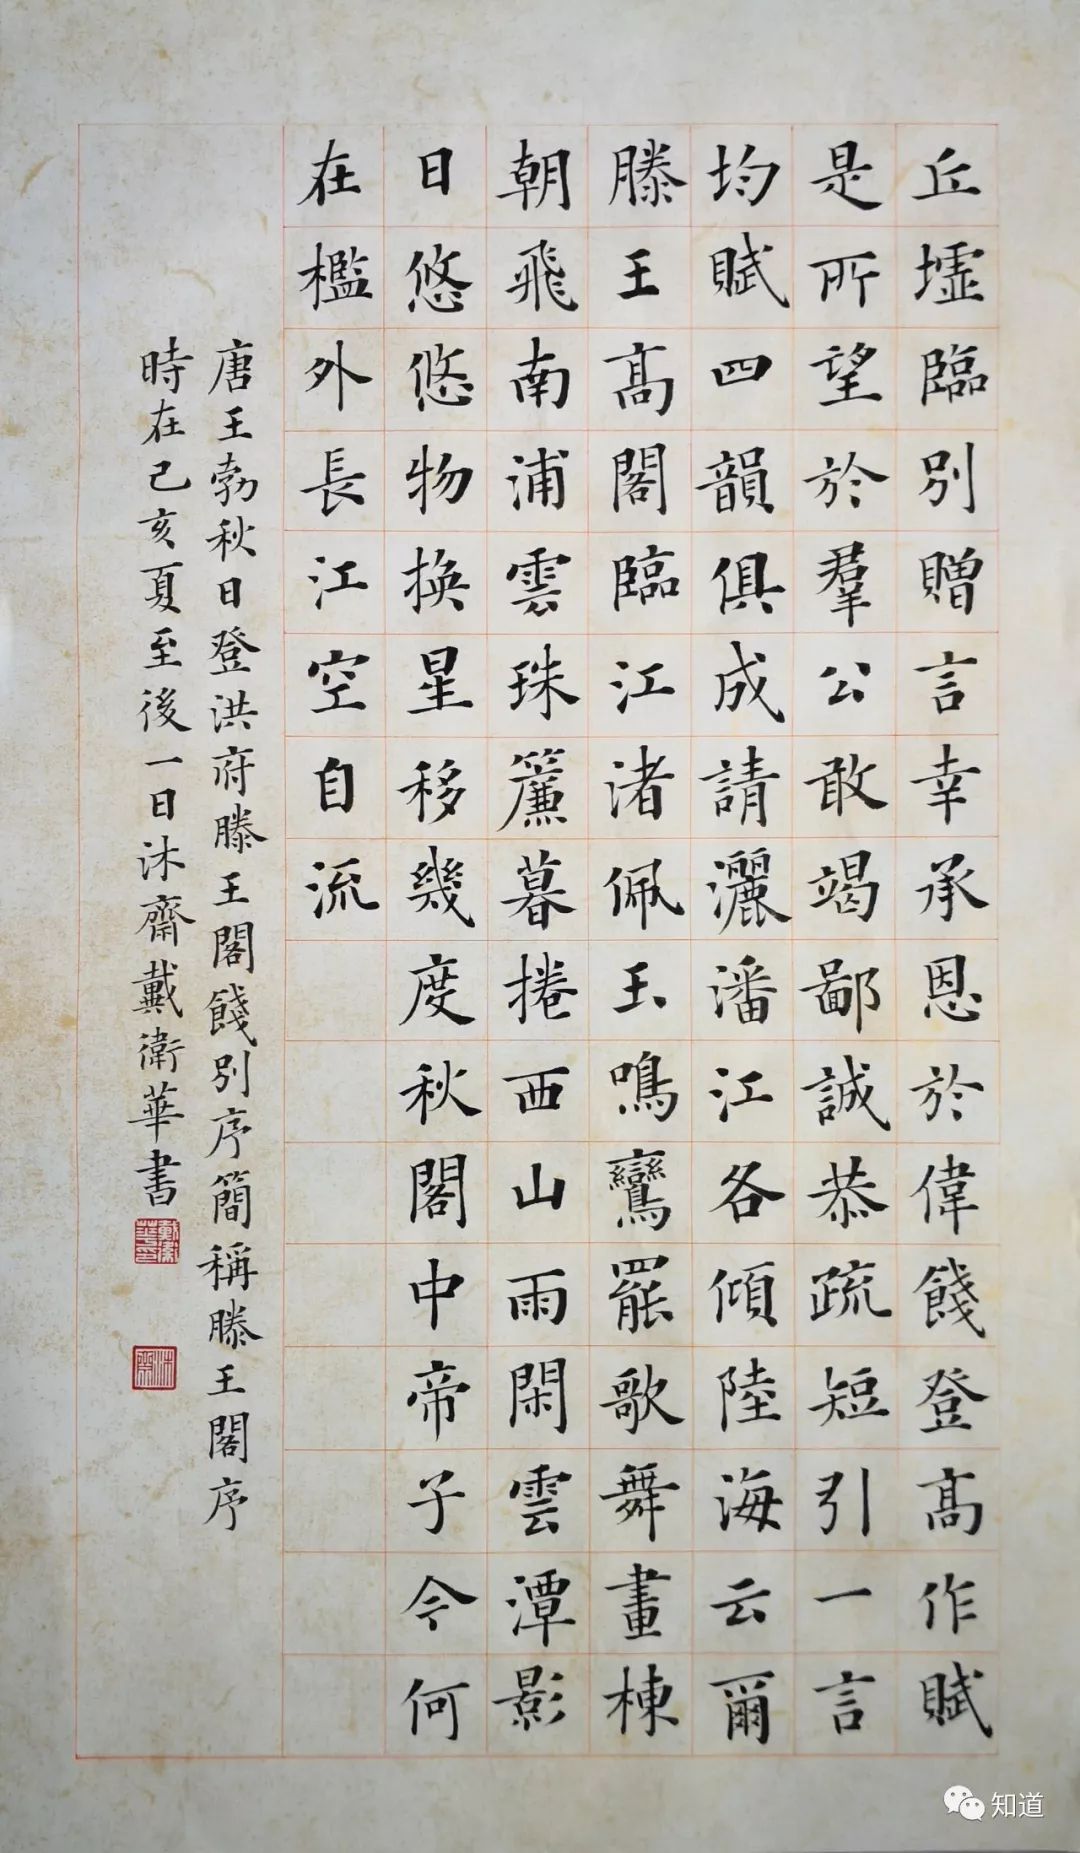 丘墟臨別贈言幸承恩於偉餞登髙作賦
是所望於羣公敢竭鄙誠恭疏短引一言
均賦四韻俱成請灑潘江各傾陸海云爾
滕王髙閣臨江渚佩玉鳴鸞罷歌舞畫棟
朝飛南浦雲珠簾暮捲西山雨閑雲潭影
日悠悠物換星移幾度秋閣中帝子今何
在檻外長江空自流
唐王勃秋日登洪府滕王閣餞別序簡稱滕王閣序
時在己亥夏至後一日沐齋戴衛華書
戴衛華印
沐齋
知道